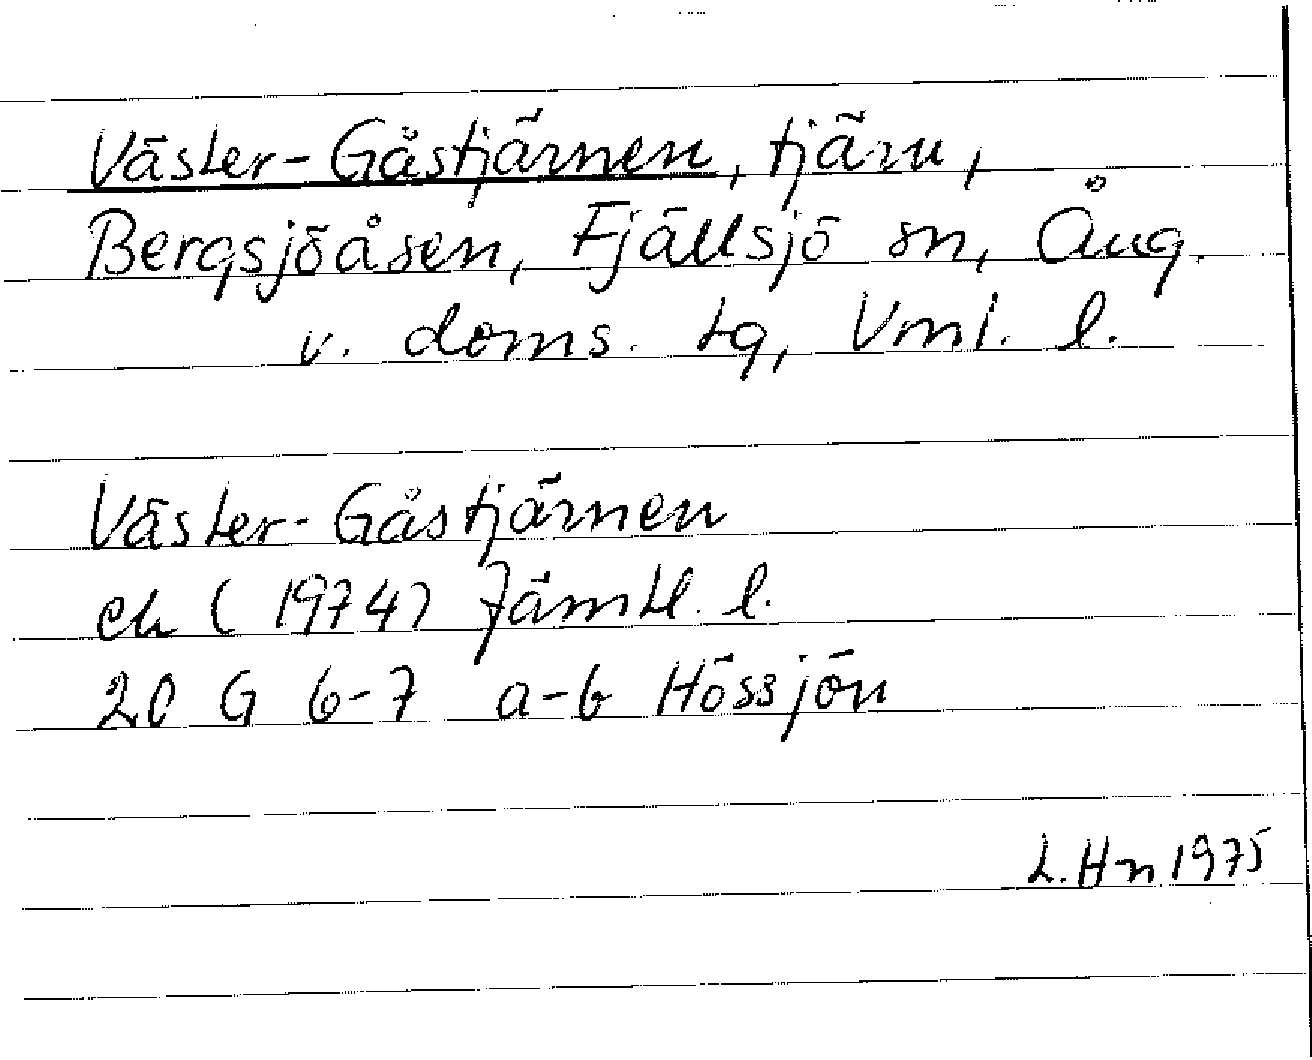 Väster-Gåstjärnen, tjärn,
Bergsjöåsen, Fjällsjö sn, Ång.
v. doms. tg, Vml. l.
Väster-Gåstjärnen
ek (1974) Jämtl. l.
20 G 6-7 a-b Hössjön
L. Hn 1975